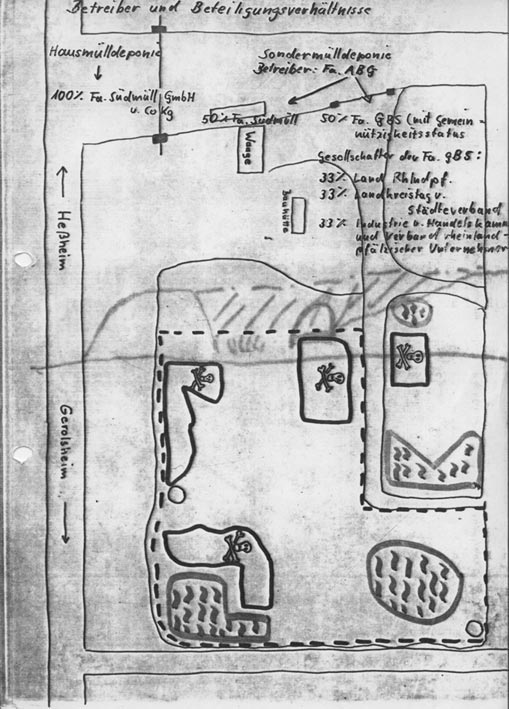 Betreiber und Beteiligungsverhältnisse
Hausmülldeponie
100% Fa. Südmüll GmbH
u. Co Kg
Sondermülldeponie
Betreiber: Fa. ABG
50% Fa. Südmüll
50% Fa. GBS (mit Gemein-
nützigkeitsstatus
Gesellschafter der Fa. gBS:
33% Land Rhldpf.
33% Landkreistag u.
Städteverband
33% Industrie u. Handelskamm
und Verband rheinland-
pfälzischer Unternehmer
Waage
Bauhütte
Heßheim
Gerolsheim